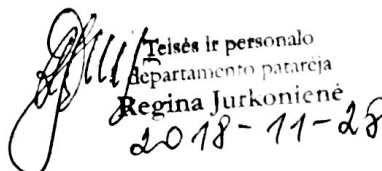 Teisės ir personalo
departamento patarėja
Regina Jurkonienė
2018-11-28